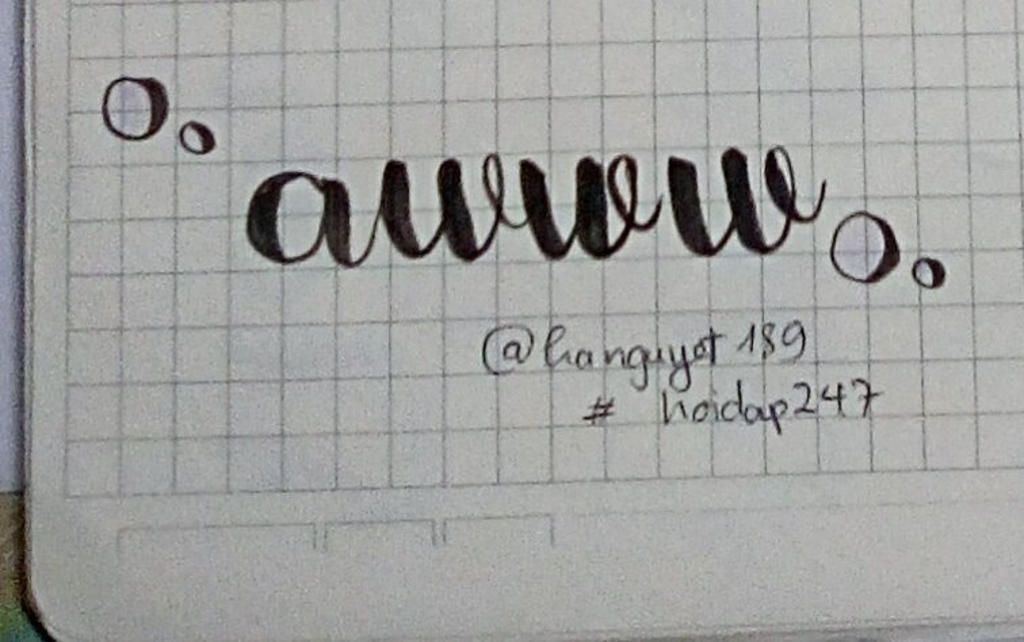 awww
@hanguyet 189
# hoidap247